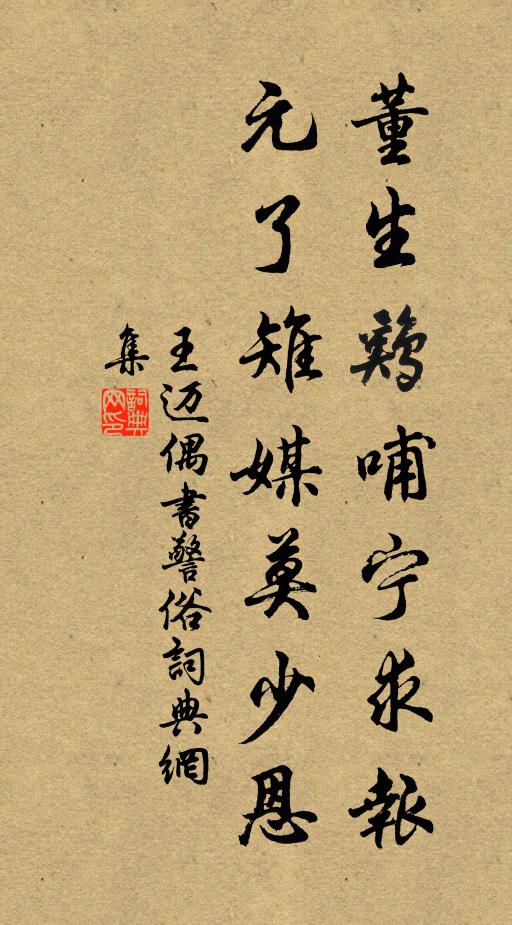 董生鷄哺宁求報
元了雉媒莫少恩
王迈偶書警俗詞典網
集
詞典
网印